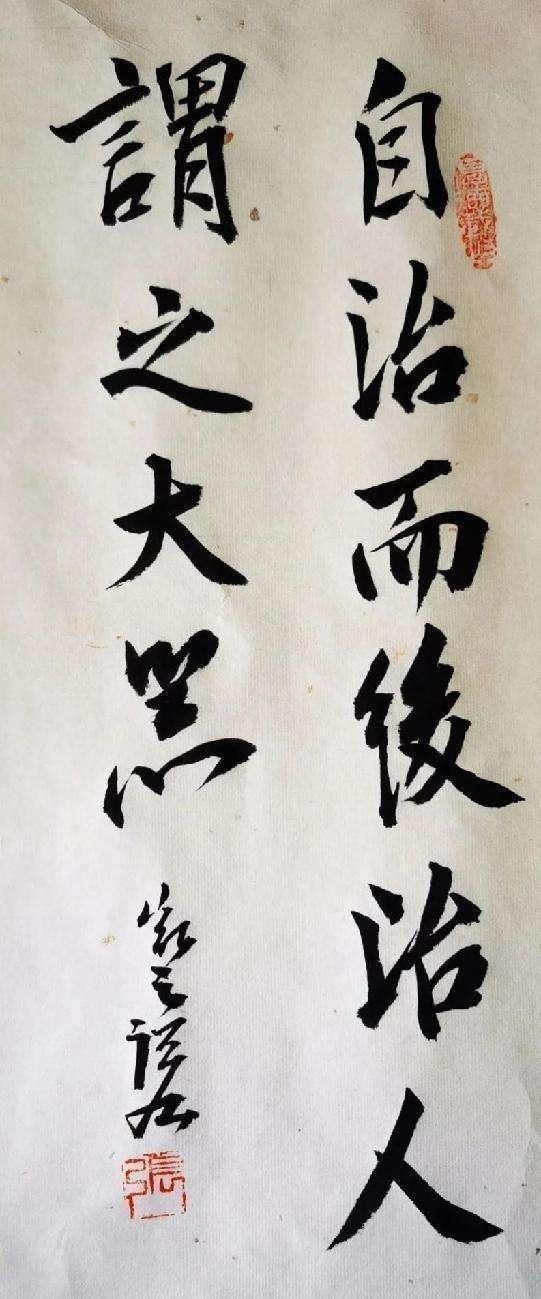 自治而後治人
謂之大器